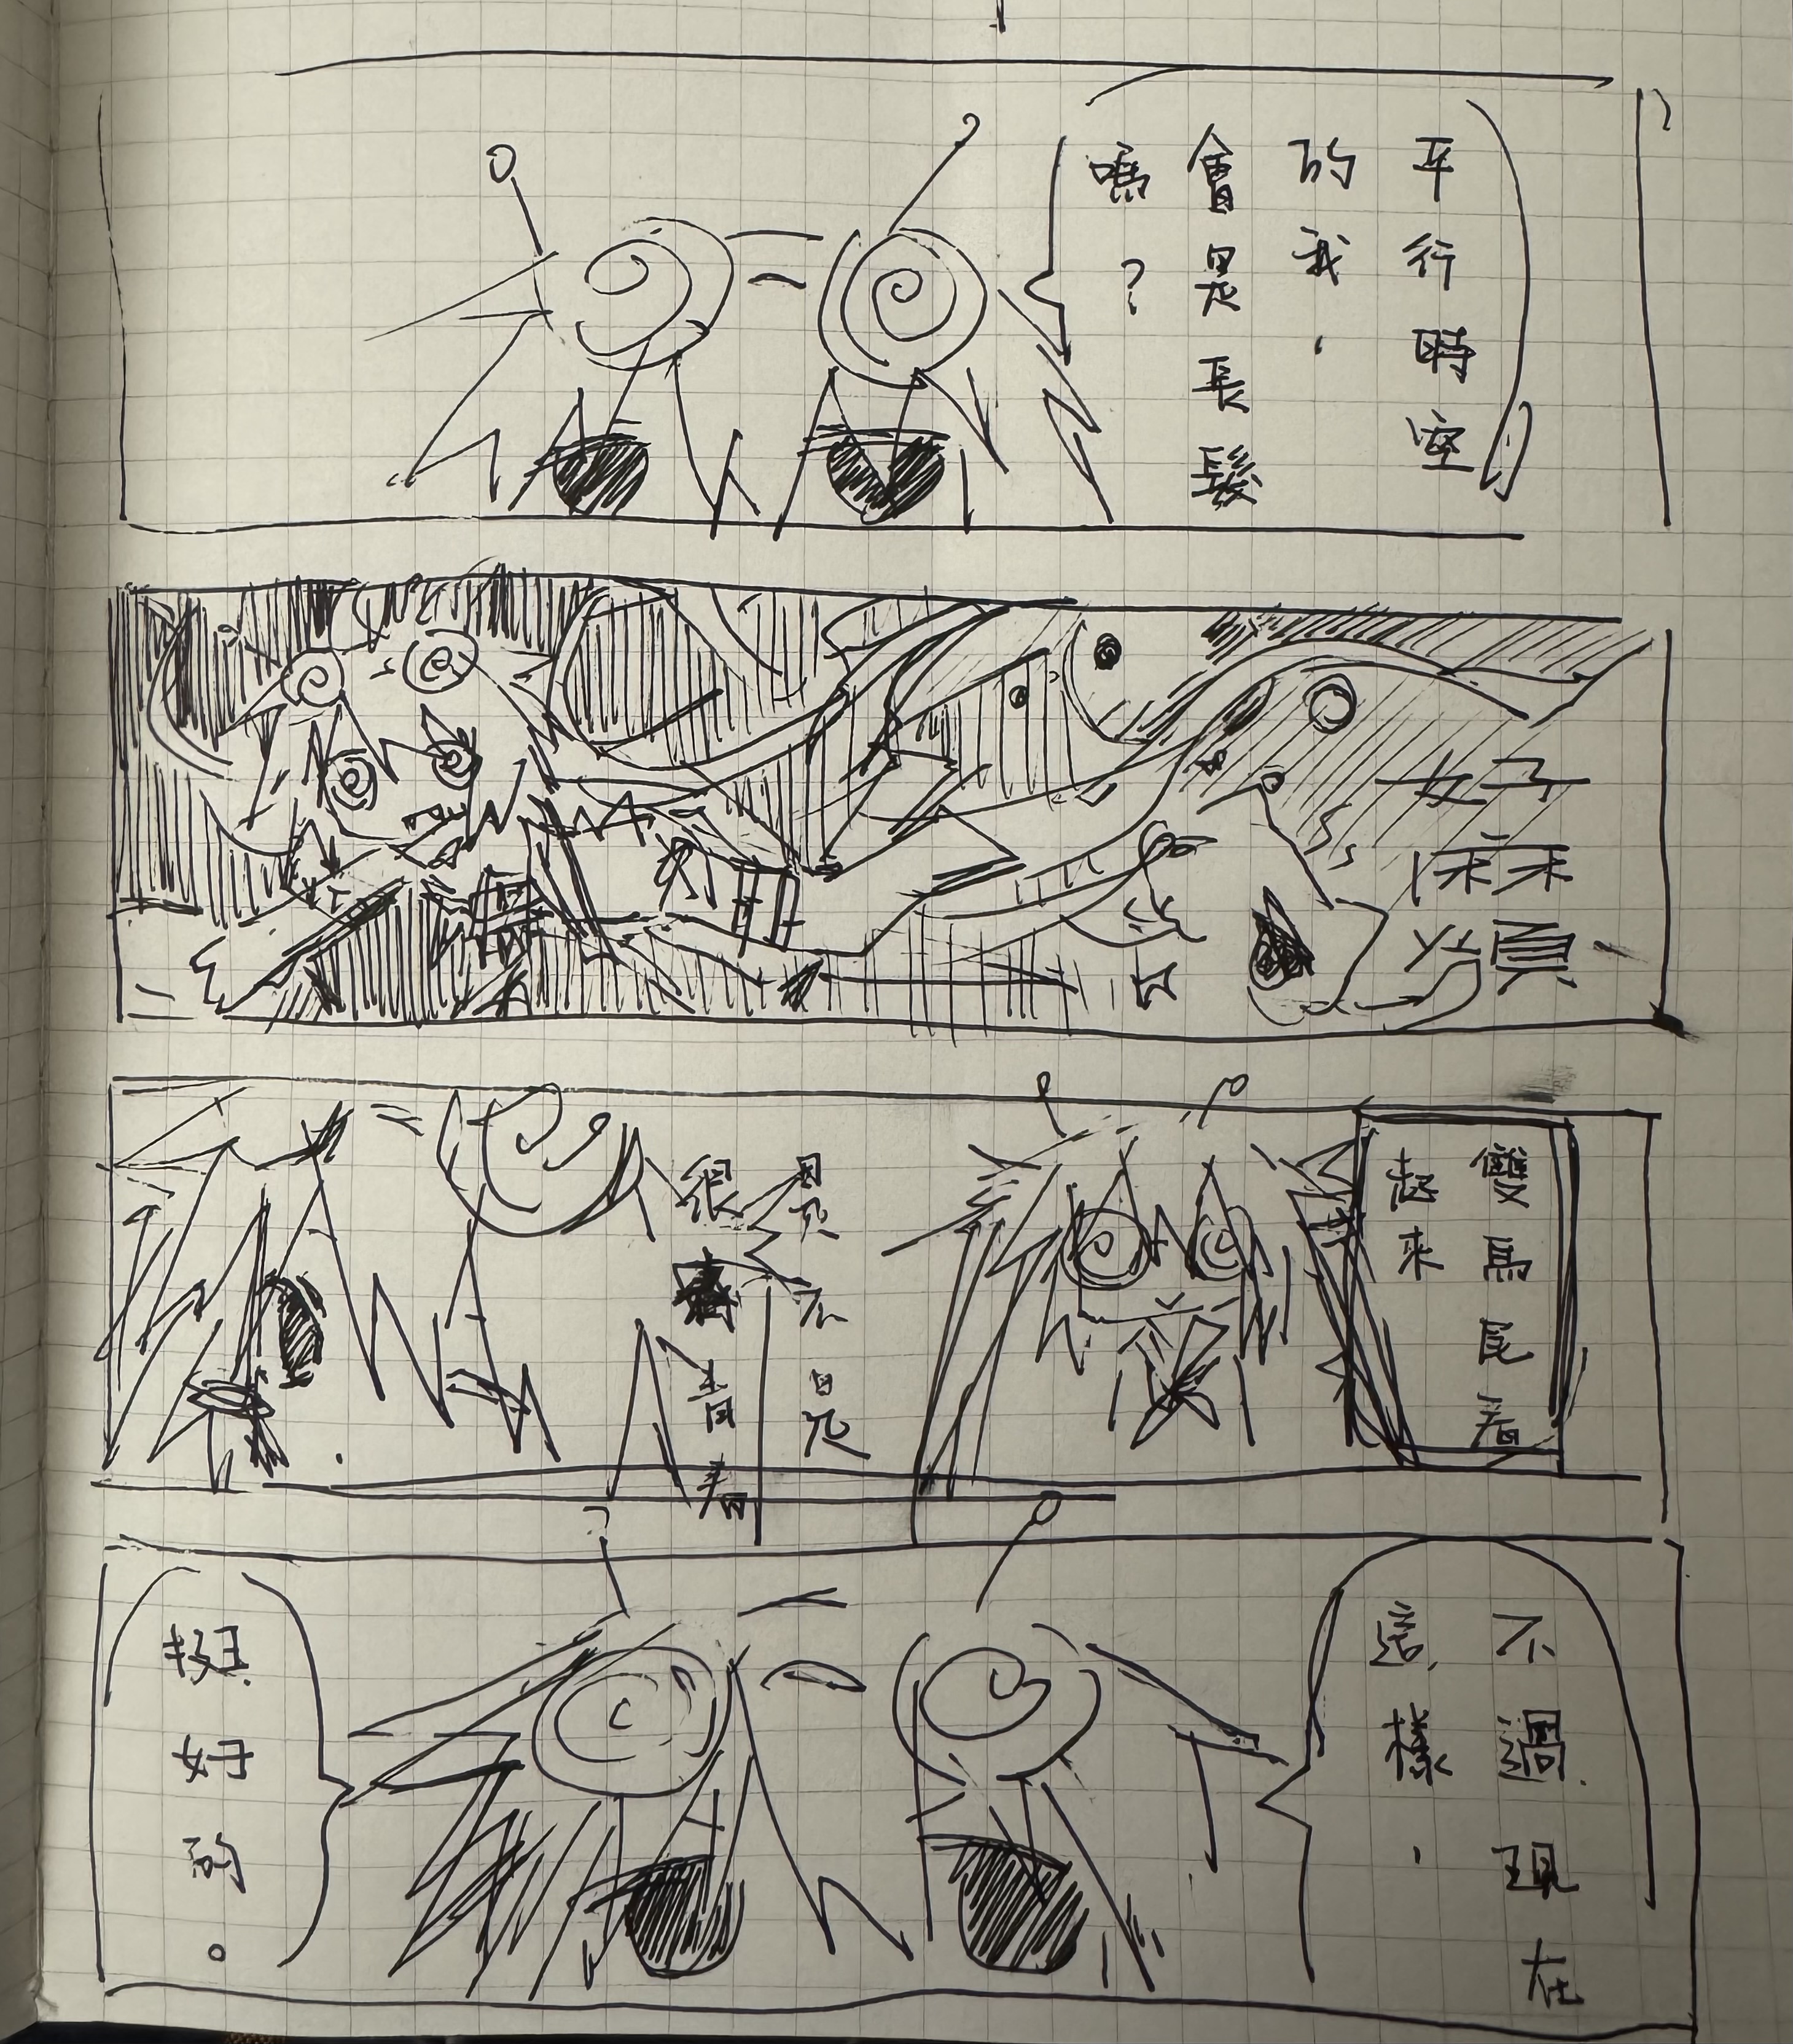 平行時空
的我,
會是長髮
嗎?
好
麻
煩
雙馬尾看
起來
是不是
很青春
不過現在
這樣,
挺好的。